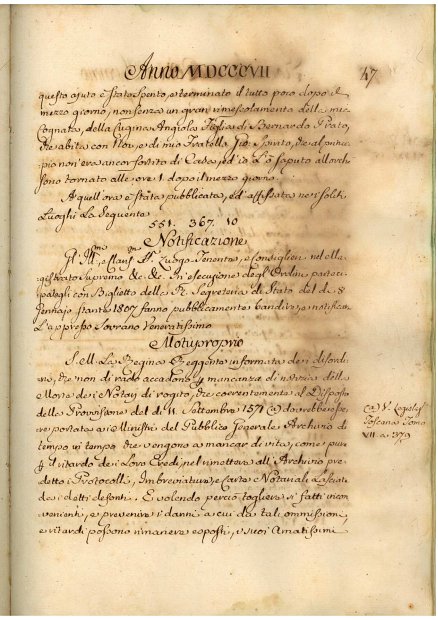 Anno MDCCCVII
47
questo ajuto è stato spento, e terminato il tutto poco dopo il
mezzo giorno, non senza un gran rimescolamento della mia
Cognata, della Cugina Angiola figlia di Bernardo Prato,
che abita con Noi, e di mio Fratello Gio. che al princi-
pio non v'era ancor sortito di Casa, ed io l'ò saputo allorchè
sono tornato alle ore 1. dopo il mezzo giorno.
A quell'ora è stata pubblicata, ed affissata nei soliti
Luoghi la seguente
551. 367. 10
Notificazione
Gl' Ill.mi, e Luogo Tenente, e Consiglieri nel Ma-
gistrato Supremo &c. &c. In esecuzione degl'Ordini parteci-
patigli con Biglietto della R. Segreteria di Stato del dì 8
Gennajo stante 1807 fanno pubblicamente bandire, e notificare
L'appresso Sovrano Veneratissimo
Motuproprio
S. M. La Regina Reggente informata dei disordi-
ni, che non di rado accadono p mancanza di notizia della
Morte dei Notaj di rogito, che coerentemente al Disposto
della Provvisione del dì 11. Settembre 1571 (a) dovrebbe esse-
re portata ai Ministri del Pubblico Generale Archivio di
tempo in tempo che vengono a mancar di vita, come pure
p il ritardo dei Loro Eredi, nel rimettere all'Archivio pre-
detto i Protocolli, Imbreviature, e Carte Notariali Lasciate
dai detti defonti. E volendo perciò togliere sì fatti incon-
venienti, e prevenire i danni, a cui da tal ommissione,
e ritardi possono rimanere esposti, i suoi Amatissimi
(a) V. Legislaz.
Toscana Tomo
VII. a 379